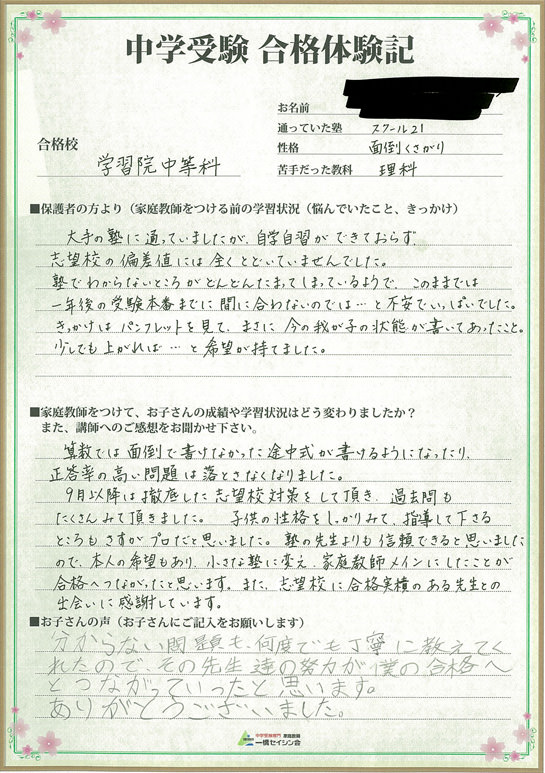 中学受験 合格体験記
お名前
通っていた塾 スクール21
性格 面倒くさがり
苦手だった教科 理科
合格校
学習院中等科
■保護者の方より（家庭教師をつける前の学習状況（悩んでいたこと、きっかけ）
大手の塾に通っていましたが、自学自習ができておらず、
志望校の偏差値には全くとどいていませんでした。
塾でわからないところがどんどんたまってしまっているようで、このままでは
一年後の受験本番までに間に合わないのでは…と不安でいっぱいでした。
きっかけはパンフレットを見て、まさに今の我が子の状態が書いてあったこと。
少しでも上がれば…と希望が持てました。
■家庭教師をつけて、お子さんの成績や学習状況はどう変わりましたか？
また、講師へのご感想をお聞かせ下さい。
算数では面倒で書けなかった途中式が書けるようになったり、
正答率の高い問題は落とさなくなりました。
9月以降は徹底した志望校対策をして頂き、過去問も
たくさんみて頂きました。子供の性格をしっかりみて、指導して下さる
ところもさすがプロだと思いました。塾の先生よりも信頼できると思いました
ので、本人の希望もあり、小さな塾に変え、家庭教師メインにしたことが
合格へつながったと思います。また、志望校に合格実績のある先生との
出会いに感謝しています。
■お子さんの声（お子さんにご記入をお願いします）
分からない問題も、何度でも丁寧に教えてく
れたので、その先生達の努力が僕の合格へ
とつながっていったと思います。
ありがとうございました。
中学受験専門 家庭教師
一橋セイシン会